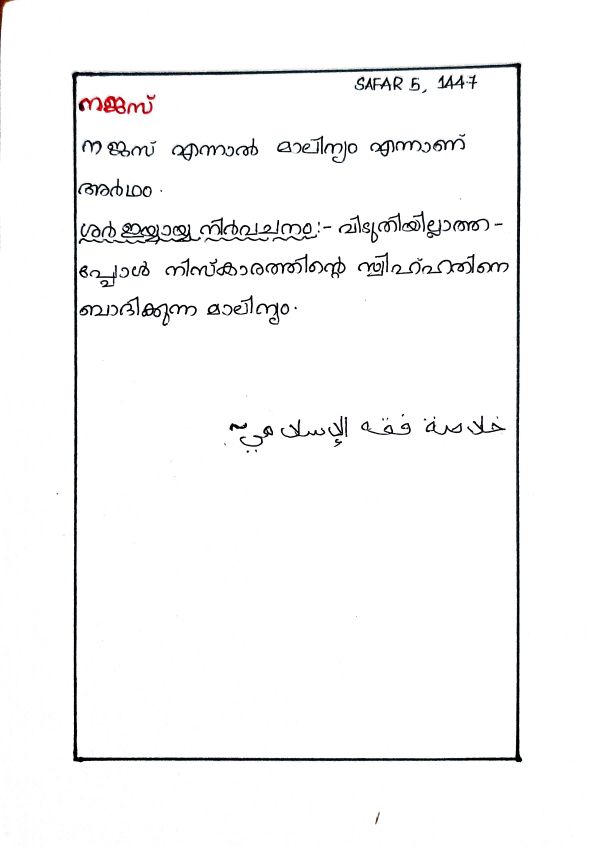 SAFAR 5, 1447
നജസ്
നജസ് എന്നാൽ മാലിന്യം എന്നാണ്
അർഥം.
ശർഇയ്യായ നിർവചനം:- വിടുതിയില്ലാത്ത-
പ്പോൾ നിസ്കാരത്തിന്റെ സ്വിഹ്ഹതിനെ
ബാദിക്കുന്ന മാലിന്യം.
خلاصة فقه الإسلامي~
1